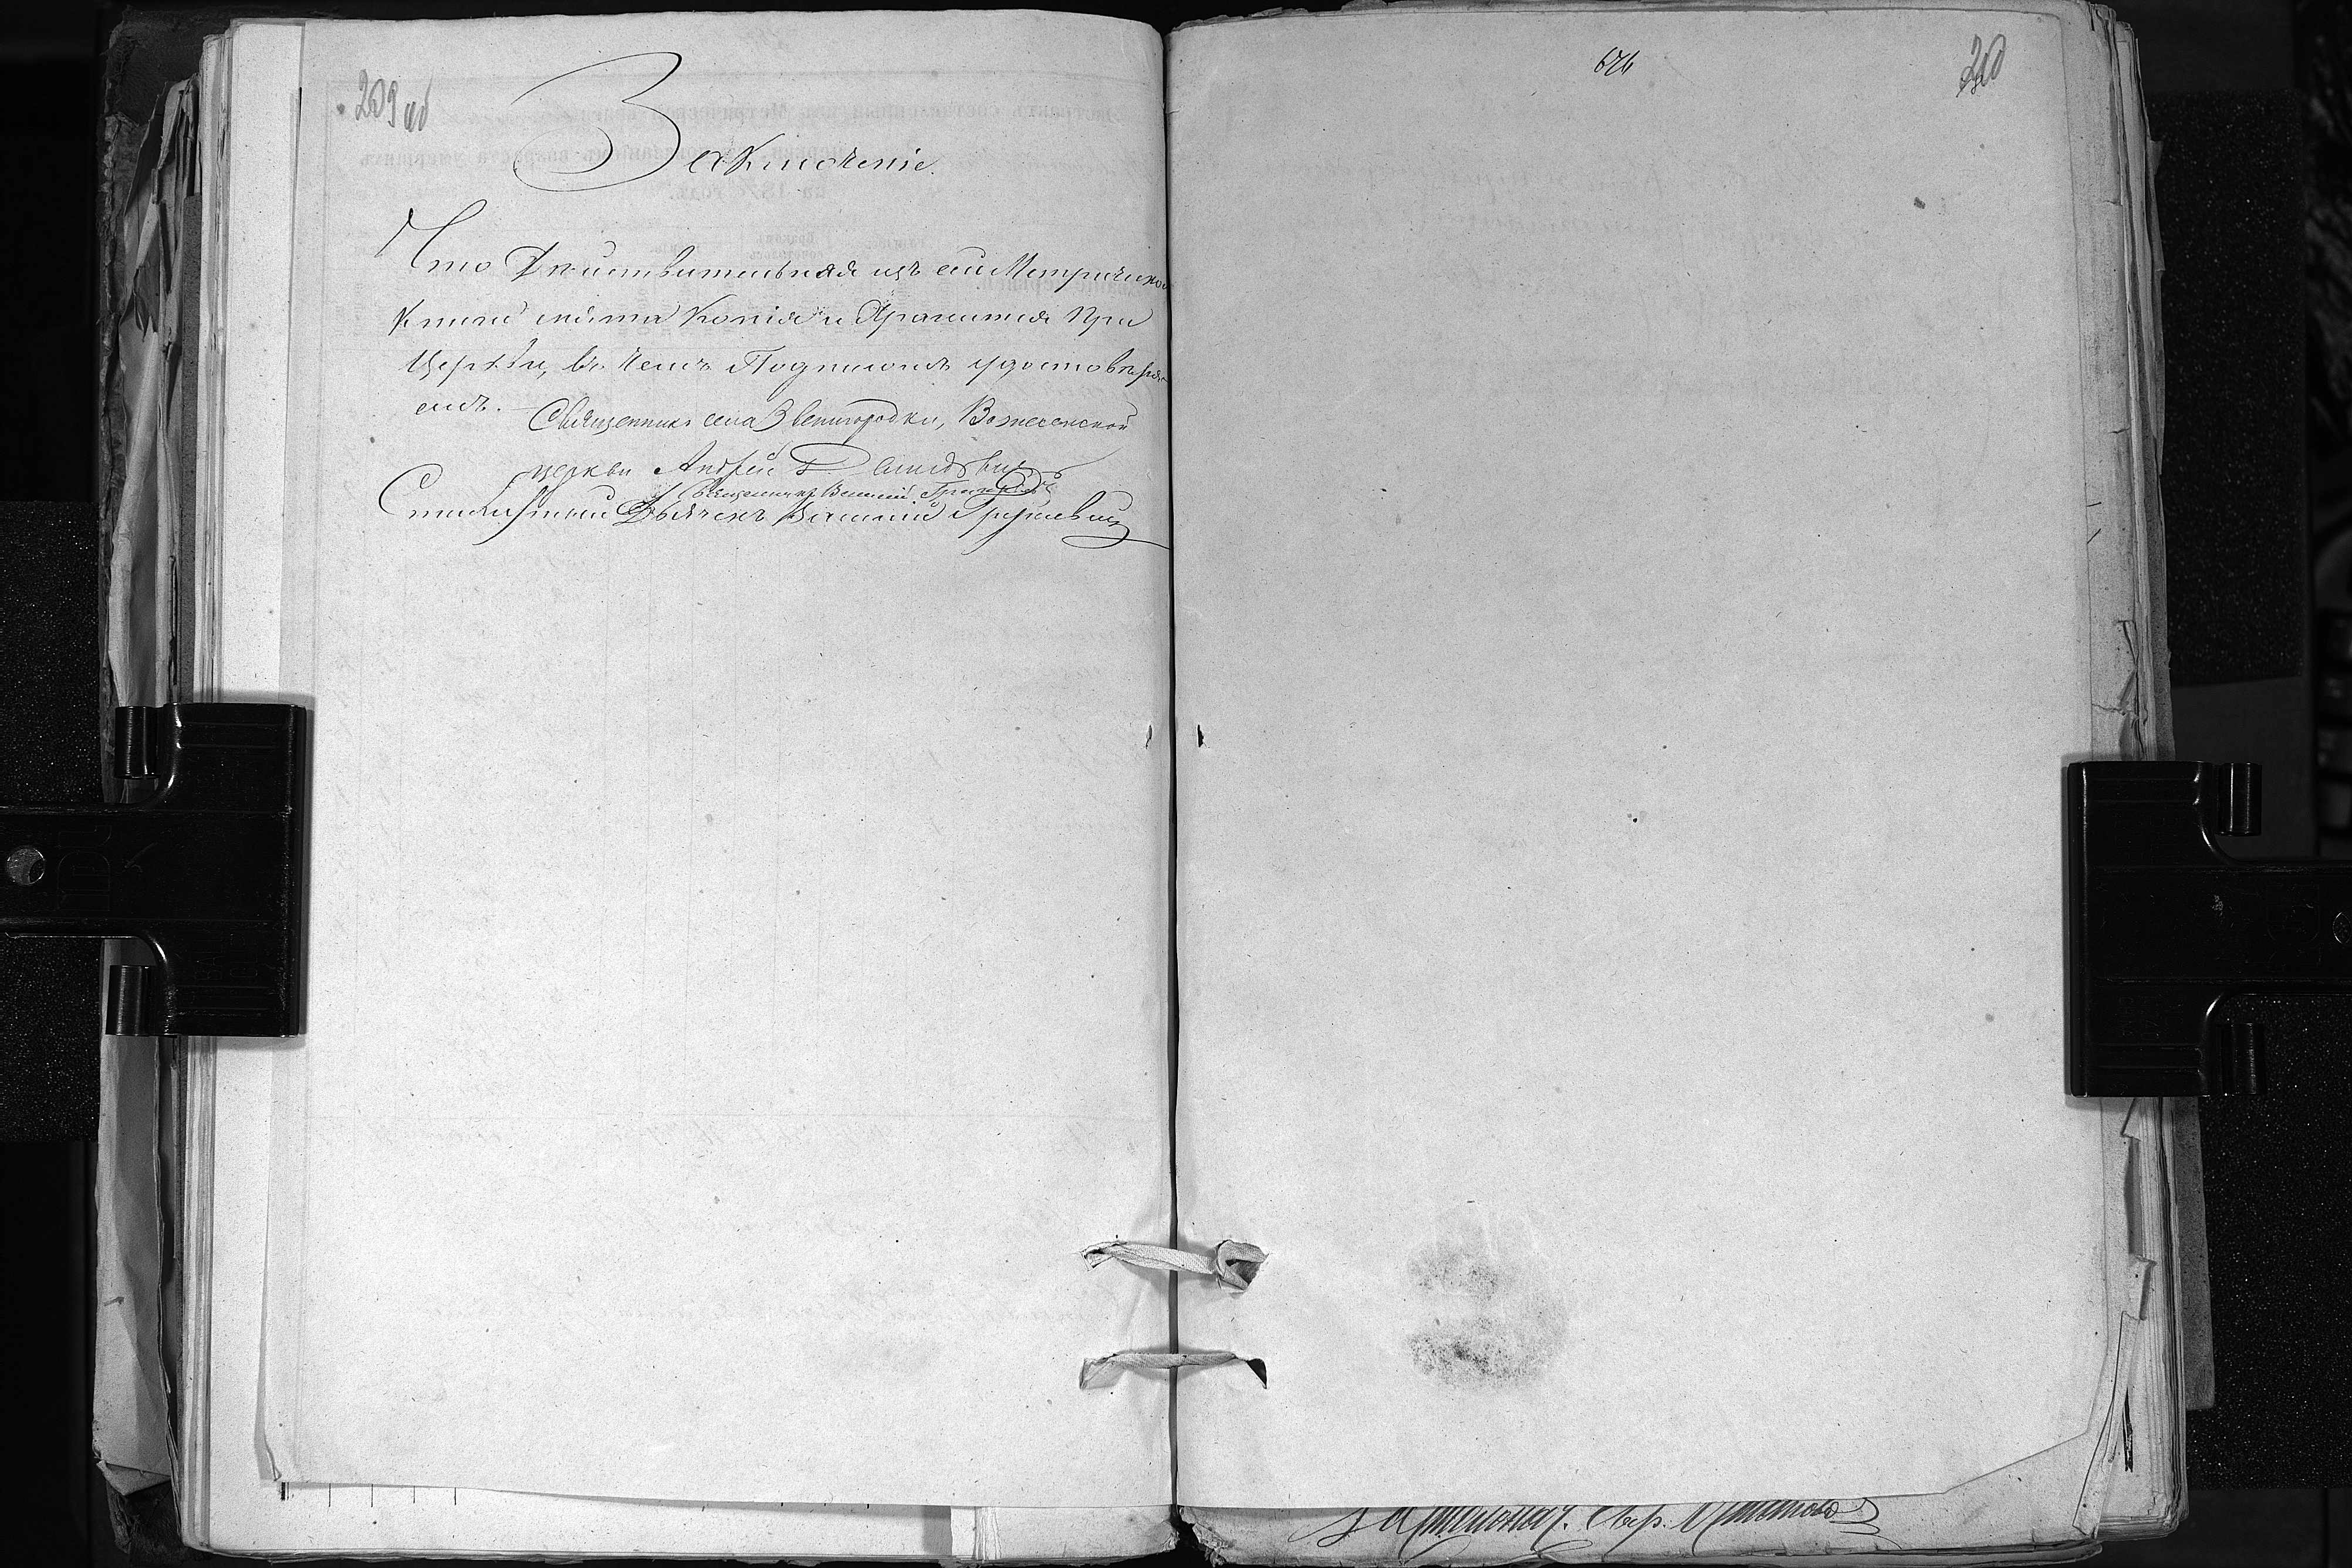 209 об
Заключеніе.
Что Дѣйствительная изъ сей Метрической
Книги снята Копія и Хранится При
Церкви, въ чемъ Подписомъ удостовѣря-
емъ.
Священникъ села Звенигородки, Вознесенской
церкви Андрей
Священникъ Василій
Дьячекъ Василій
676
210